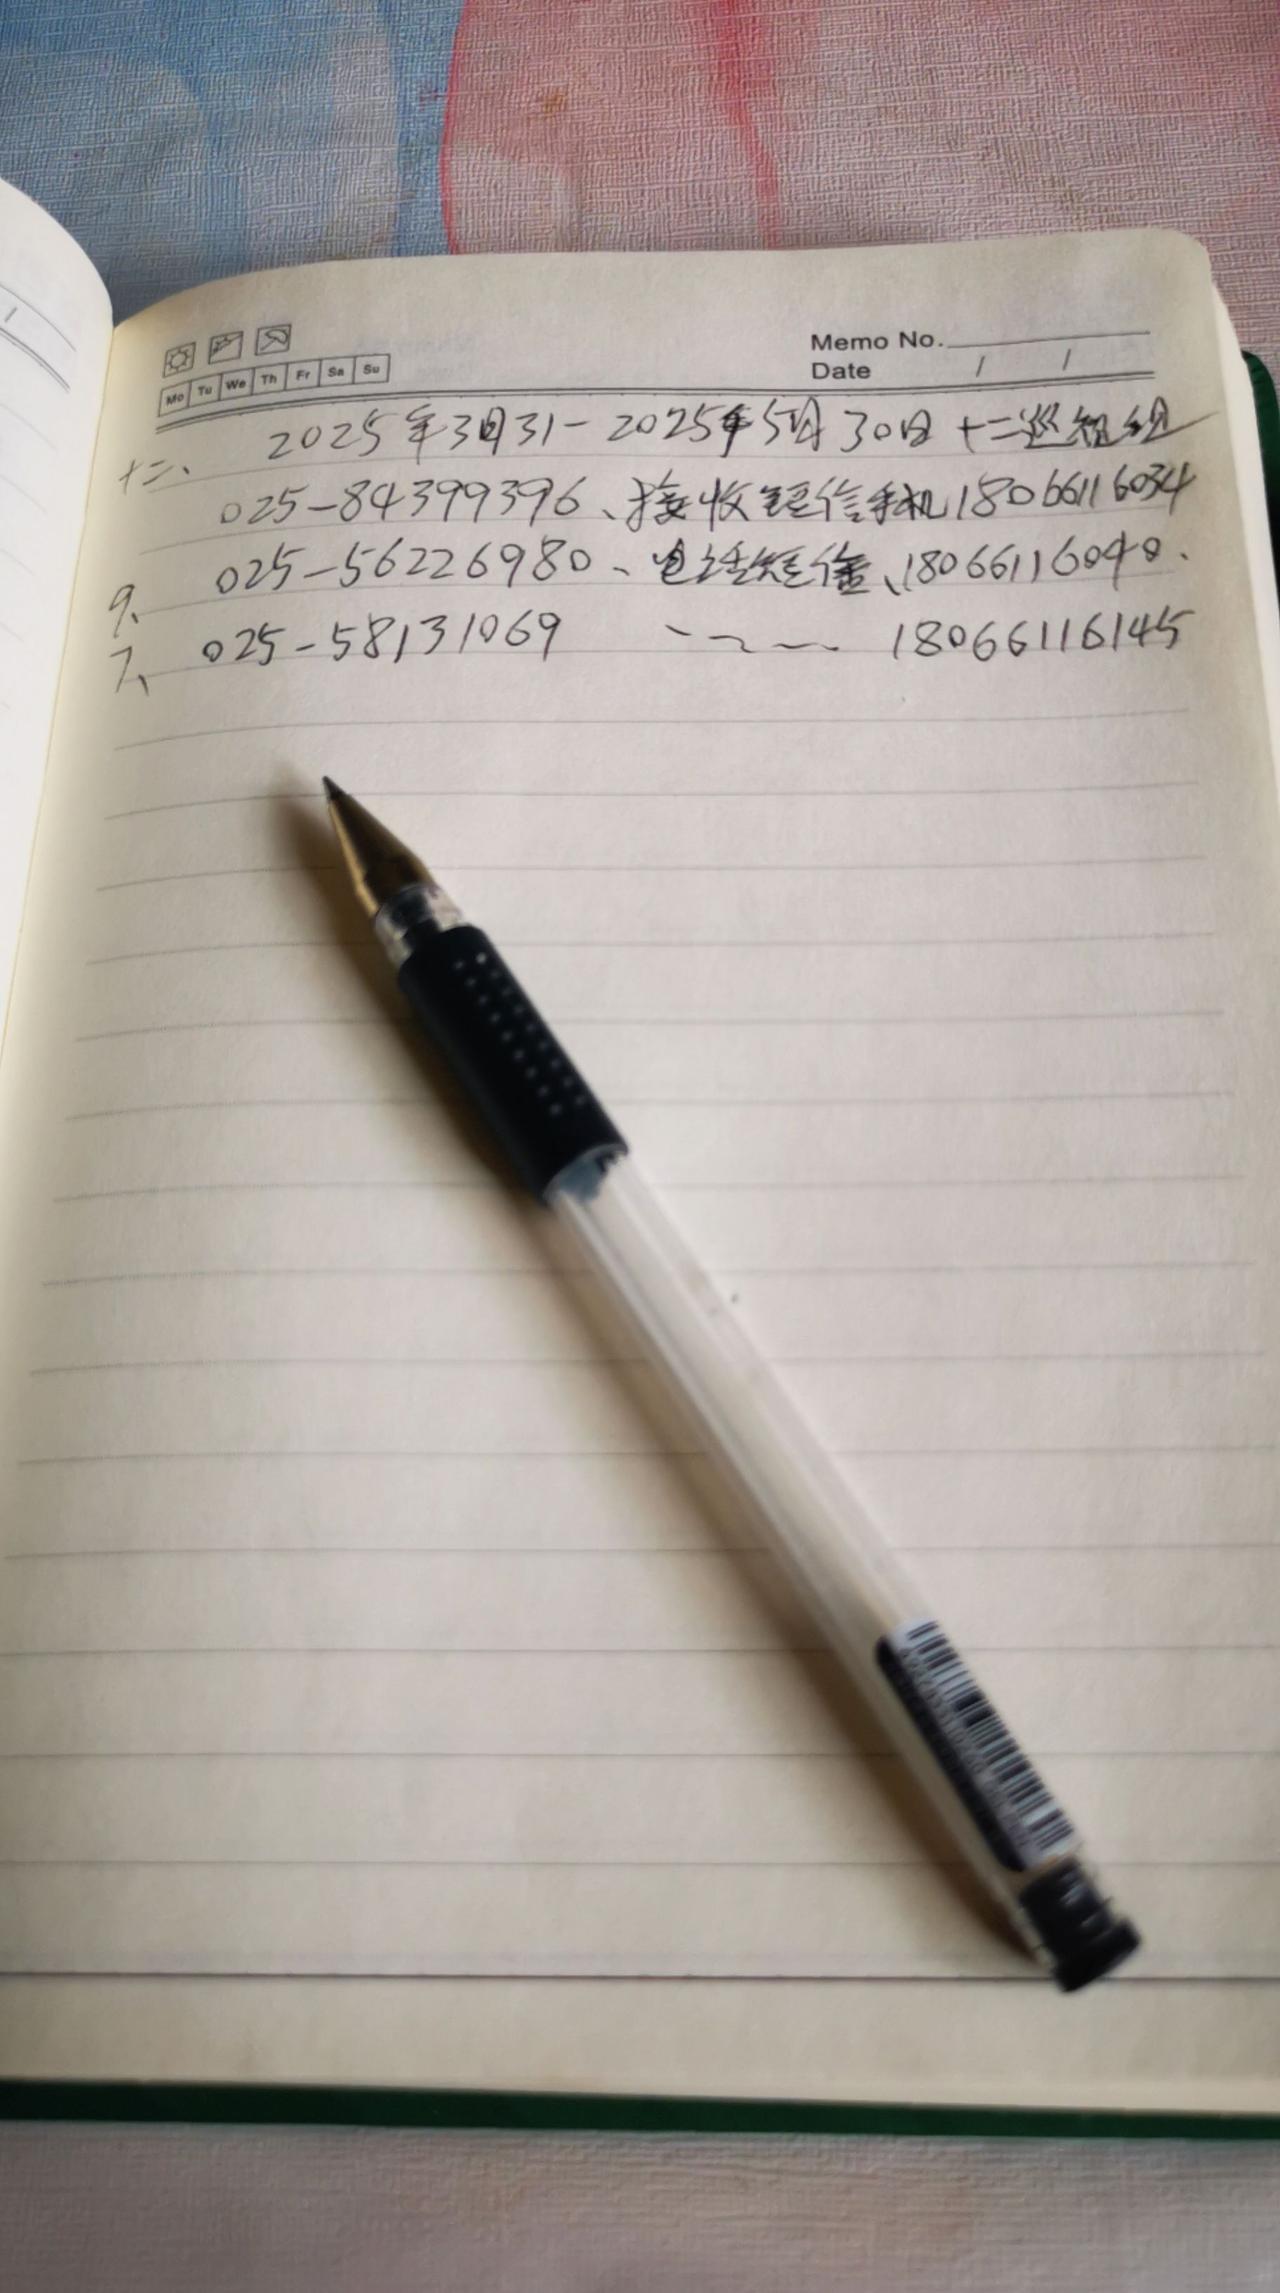 Mo Tu We Th Fr Sa Su
Memo No.
Date / /
2025年3月31-2025年5月30日十二巡视组
十二、 025-84399396、接收短信手机18066116034
9、 025-56226980、电话短信、18066116040.
7、 025-58131069 18066116145